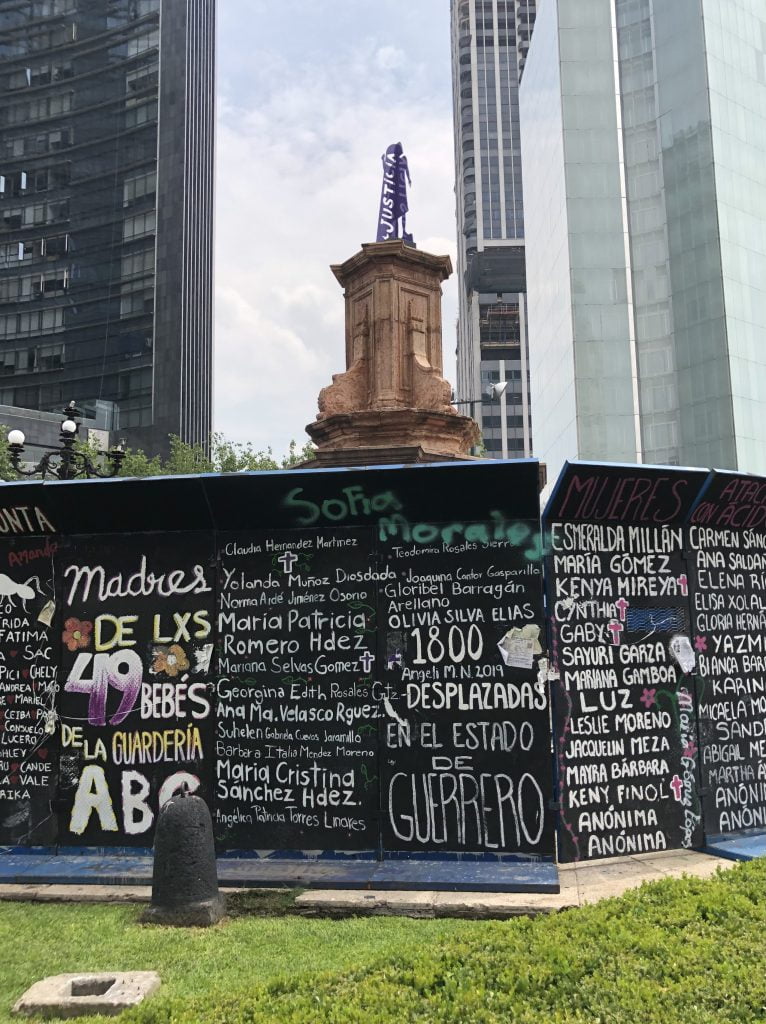 JUSTICIA
UNTA
Amanda
FRIDA
FATIMA
SAC
PICI CHELY
ANDREA
MARIEL
CEIBA
CONSUELO
LUCERO
CANDE
VALE
ERIKA
Madres
DE LXS
49
BEBÉS
DE LA GUARDERÍA
ABC
Sofia
Morales
Claudia Hernandez Martinez
Yolanda Muñoz Diosdada
Norma Ardé Jiménez Osorio
María Patricia
Romero Hdez
Mariana Selvas Gomez
Georgina Edith Rosales Gtz
Ana Ma. Velasco Rguez.
Suhelen Gabriela Cuevas Jaramillo
Bárbara Italia Mendez Moreno
María Cristina
Sánchez Hdez.
Angélica Patricia Torres Linares
Teodomira Rosales Sierra
Joaquina Cantor Gasparillo
Gloribel Barragán
Arellano
OLIVIA SILVA ELIAS
1800
Angeli M.N. 2019
DESPLAZADAS
EN EL ESTADO
DE
GUERRERO
MUJERES
ESMERALDA MILLÁN
MARÍA GÓMEZ
KENYA MIREYA
CYNTHIA
GABY
SAYURI GARZA
MARIANA GAMBOA
LUZ
LESLIE MORENO
JACQUELIN MEZA
MAYRA BÁRBARA
KENY FINOL
ANÓNIMA
ANÓNIMA
ATAC
CON ÁCIDO
CARMEN SÁNC
ANA SALDAÑ
ELENA RÍO
ELISA XOLAL
GLORIA HERNÁ
YAZMÍ
BIANCA BARR
KARIN
MICAELA MO
SAND
ABIGAIL ME
MARTHA ÁV
ANÓNI
ANÓNI